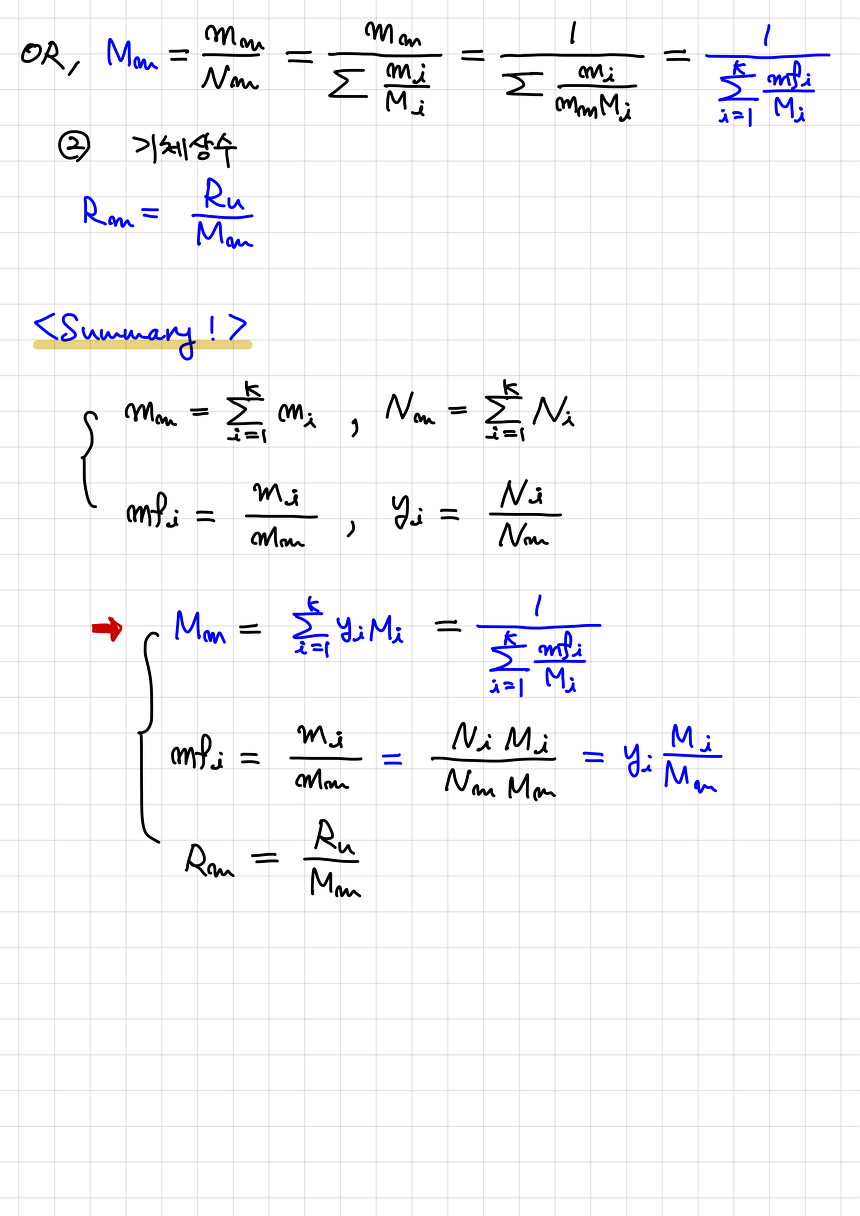 OR, M_m = m_m / N_m = m_m / (Σ m_i / M_i) = 1 / (Σ m_i / (m_m M_i)) = 1 / (Σ_{i=1}^{k} mf_i / M_i)
② 기체상수
R_m = R_u / M_m
<Summary!>
m_m = Σ_{i=1}^{k} m_i , N_m = Σ_{i=1}^{k} N_i
mf_i = m_i / m_m , y_i = N_i / N_m
→ M_m = Σ_{i=1}^{k} y_i M_i = 1 / (Σ_{i=1}^{k} mf_i / M_i)
mf_i = m_i / m_m = N_i M_i / (N_m M_m) = y_i M_i / M_m
R_m = R_u / M_m